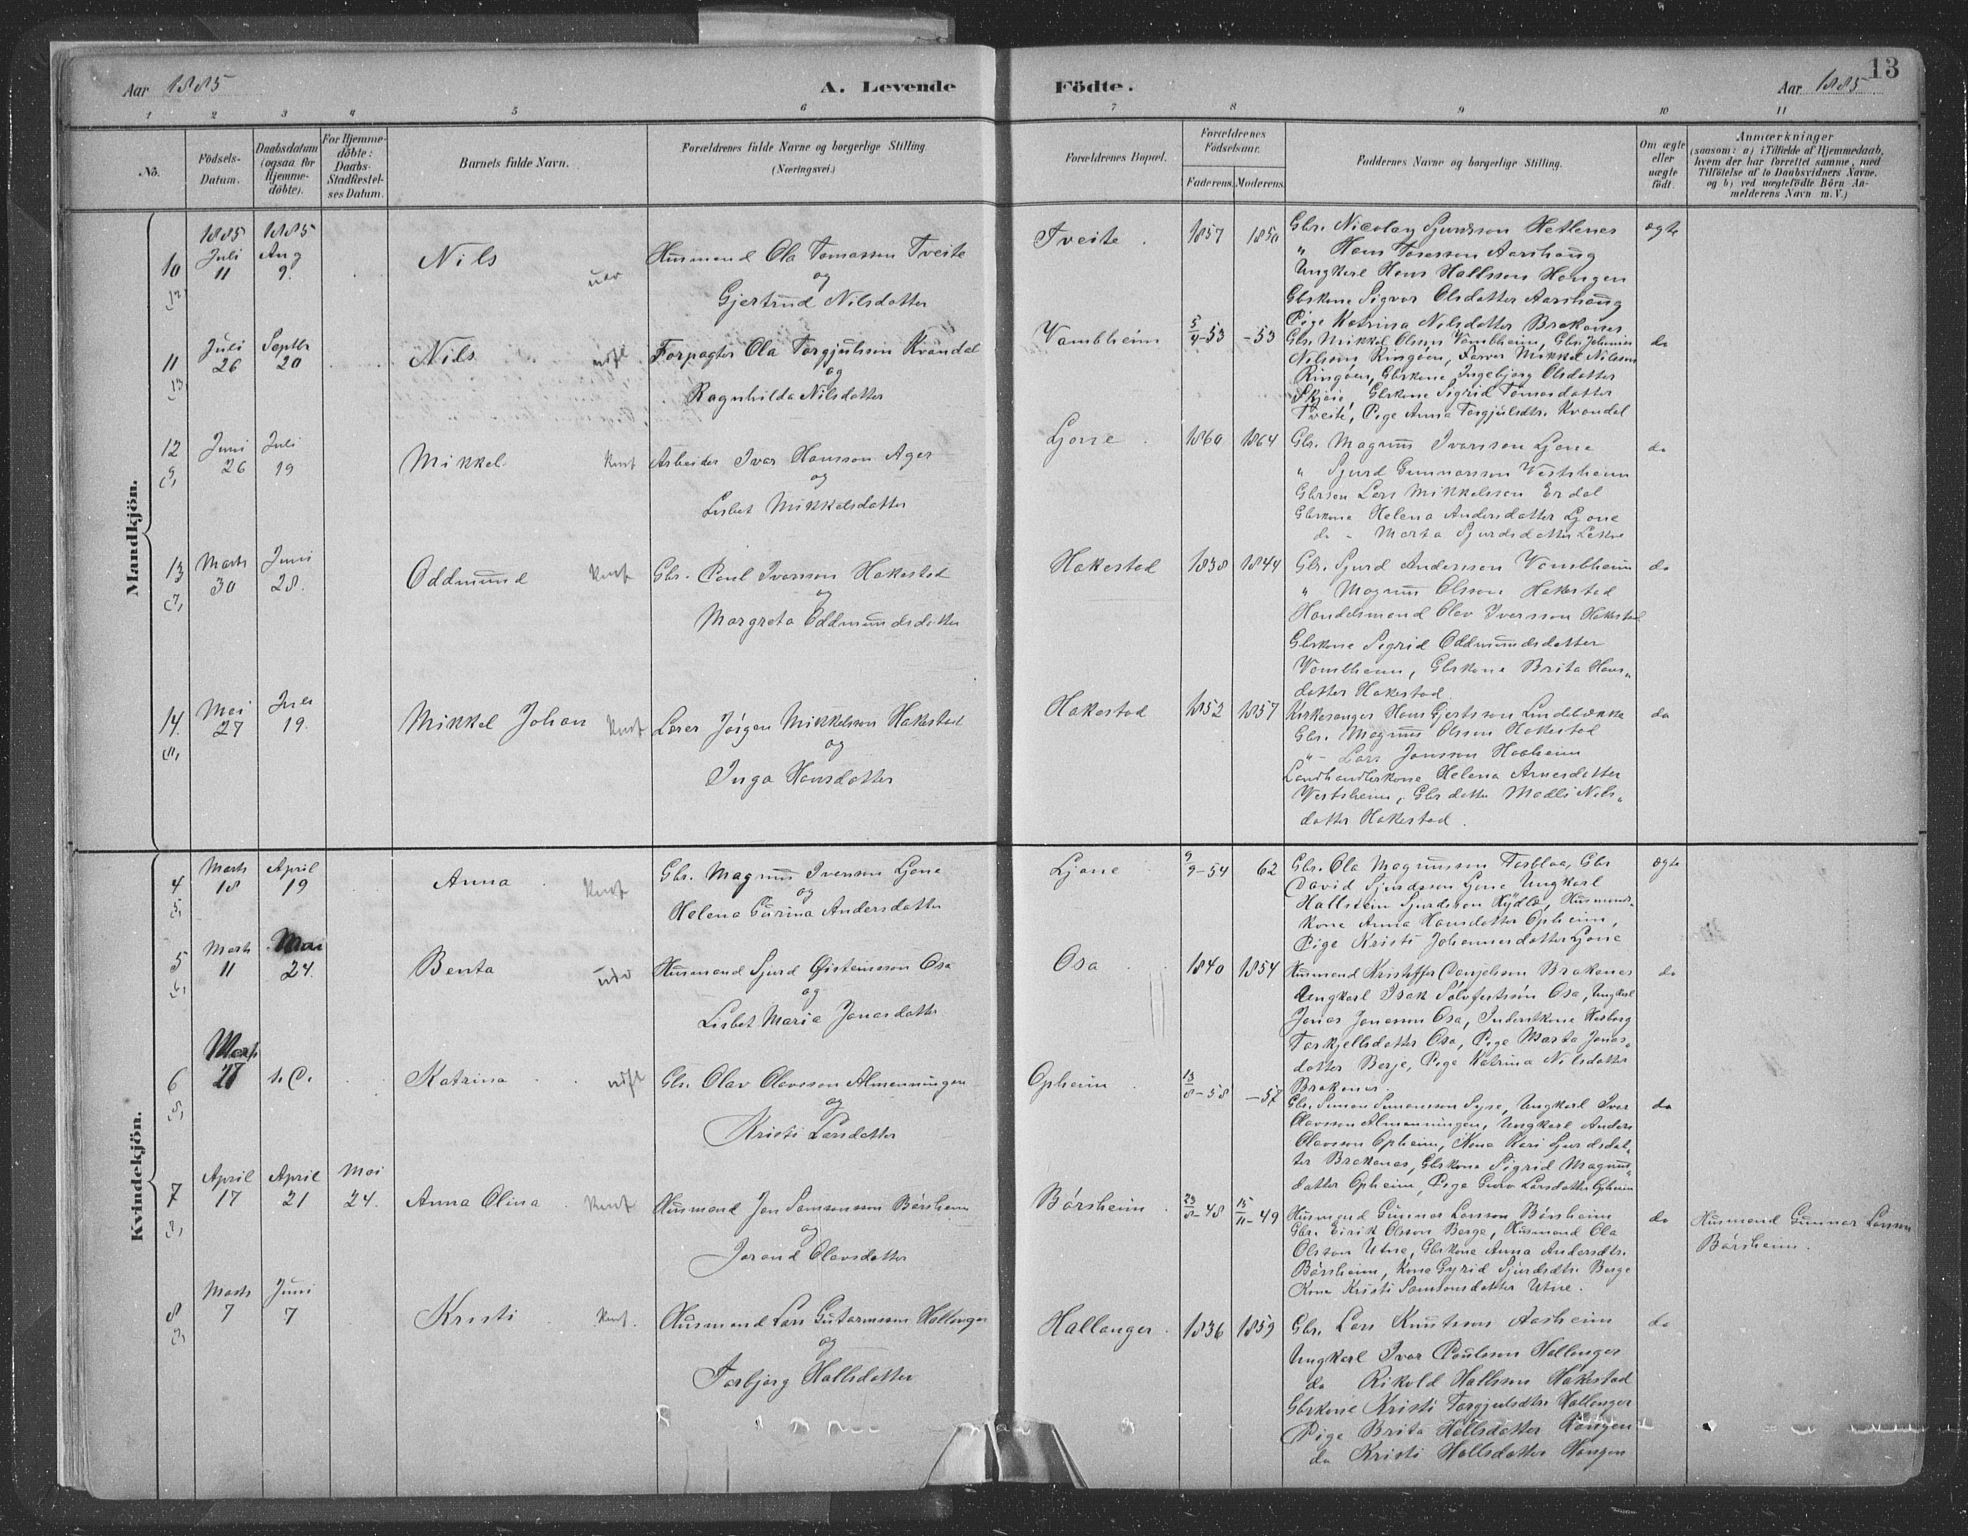 Aar 1885
A. Levende
Födte.
Aar 1885
13
1 2 3 4 5 6 7 8 9 10 11
No.
Födsels-Datum.
Daabsdatum (ogsaa for Hjemme-döbte).
For Hjemme-döbte: Daabs-Stadfæstel-ses Datum.
Barnets fulde Navn.
Forældrenes fulde Navne og borgerlige Stilling. (Næringsvei.)
Forældrenes Bopæl.
Forældrenes Födselsaar.
Faderens. Moderens.
Faddernes Navne og borgerlige Stilling.
Om ægte eller uægte födt.
Anmærkninger
(saasom: a) i Tilfælde af Hjemmedaab, hvem der har forrettet samme, med Tilföielse af to Daabsvidners Navne. og b) ved uægtefödte Börn An-melderens Navn m.V.)
Mandkjön.
10
1885 Juli 11
1885 Aug 9.
Nils
Husmand Ola Tomassen Tveite
og
Gjertrud Nilsdatter
Tveite
1857 1850
Gbr. Nicolay Sjursson Hetlenes
" Hans Tosesson Aarhaug
Ungkarl Hans Hallsson Haugen
Gbrkone Sigvor Olsdatter Aarhaug
Pige Katrina Nilsdatter Brakenes
ægte
11
Juli 26
Septbr 20
Nils
Forpagter Ola Torgjulsson Kvandal
og
Ragnhilda Nilsdatter
Vambheim
5/4-53 -53
Gbr. Mikkel Olsson Vambheim, Gbr. Johannes
Nilsson Ringøen, Farver Mikkel Nilsson
Ringøen, Gbrkone Ingebjorg Olsdatter
Skjeie, Gbrkone Sigrid Tomasdatter
Tveite, Pige Anna Torgjulsdtr. Kvandal
do
12
Juni 26
Juli 19
Mikkel
Arbeider Ivar Hansson Ager
og
Lisbet Mikkelsdatter
Ljone
1860 1864
Gbr. Magnus Ivarsson Ljone
" Sjurd Gunnarsson Vestrheim
Gbrsøn Lars Mikkelsson Erdal
Gbrkone Helena Andersdatter Ljone
do " Marta Sjurdsdatter Lekve
do
13
Marts 30
Juni 28.
Oddmund
Gbr. Poul Ivarsson Hakestad
og
Margreta Oddmundsdatter
Hakestad
1838 1844
Gbr. Sjurd Andersson Vambheim
" Magnus Olsson Hakestad
Handelsmand Olav Iversson Hakestad
Gbrkone Sigrid Oddmundsdatter
Vambheim, Gbrkone Brita Hans-
datter Hakestad.
do
14.
Mai 27
Juli 19.
Mikkel Johan
Lærer Jørgen Mikkelsson Hakestad
og
Inga Hansdatter
Hakestad
1852 1857
Kirkesanger Hans Gjertsson Lindebække
Gbr. Magnus Olsson Hakestad
" - Lars Jonsson Haaheim
Landhandlerkone Helena Arnesdatter
Vestrheim, Gbrdatter Madli Nils-
datter Hakestad.
do
Kvindekjön.
4
Marts 18
April 19
Anna
Gbr. Magnus Iverson Ljone
og
Helena Carina Andersdatter
Ljone
9/9-54 62
Gbr. Ola Magnusson Torblaa, Gbr
David Sjurdsson Ljone Ungkarl
Hallstein Sjurdsson Hydle, Husmands-
kone Anna Hansdatter Opheim,
Pige Kristi Johannesdatter Ljone
ægte
5
Marts 11
Mai 24.
Benta
Husmand Sjurd Øisteinsson Osa
og
Lisbet Maria Jonasdatter
Osa
1840 1854
Husmand Kristoffer Danjelson Brakenes
Ungkarl Isak Sølvfestssøn Osa, Ungkarl
Jonas Jonasson Osa, Inderstkone Herborg
Torkjellsdatter Osa, Pige Marta Jonas-
datter Berje, Pige Katrina Nilsdatter
Brakenes.
do
6
Marts 27
s. D.
Katrina
Gbr. Olav Olavsson Almenningen
og
Kristi Larsdatter
Opheim
13/8-58 -57
Gbr. Simon Simonsson Syse, Ungkarl Ivar
Olavsson Almenningen, Ungkarl Anders
Olavsson Opheim, Kona Kari Sjurdsdat-
ter Brakenes, Gbrkone Sigrid Magnus-
datter Opheim, Pige Guro Larsdatter Opheim
do
7
April 17
April 21
Mai 24.
Anna Olina
Husmand Jon Samsonsson Børsheim
og
Jorand Olavsdatter
Børsheim
23/8-48 15/11-49
Husmand Gunnar Larsson Børsheim
Gbr. Eirik Olsson Berge, Husmand Ola
Olsson Utne, Gbrkone Anna Andersdtr.
Børsheim, Kona Gyrid Sjurdsdtr. Berge
Kona Kristi Samsonsdatter Utne.
do
Husmand Gunnar Larsson
Børsheim.
8
Marts 7
Juni 7
Kristi
Husmand Lars Guttormsson Hallanger
og
Torbjorg Hallsdatter
Hallanger.
1836 1859
Gbr. Lars Knutsson Aasheim
Ungkarl Ivar Poulsson Hallanger
do Rikold Hallsson Hakestad
Gbrkone Kristi Torgjulsdtr. Hallanger
Pige Brita Hallsdatter Haugen
do Kristi Hallsdatter Haugen
do